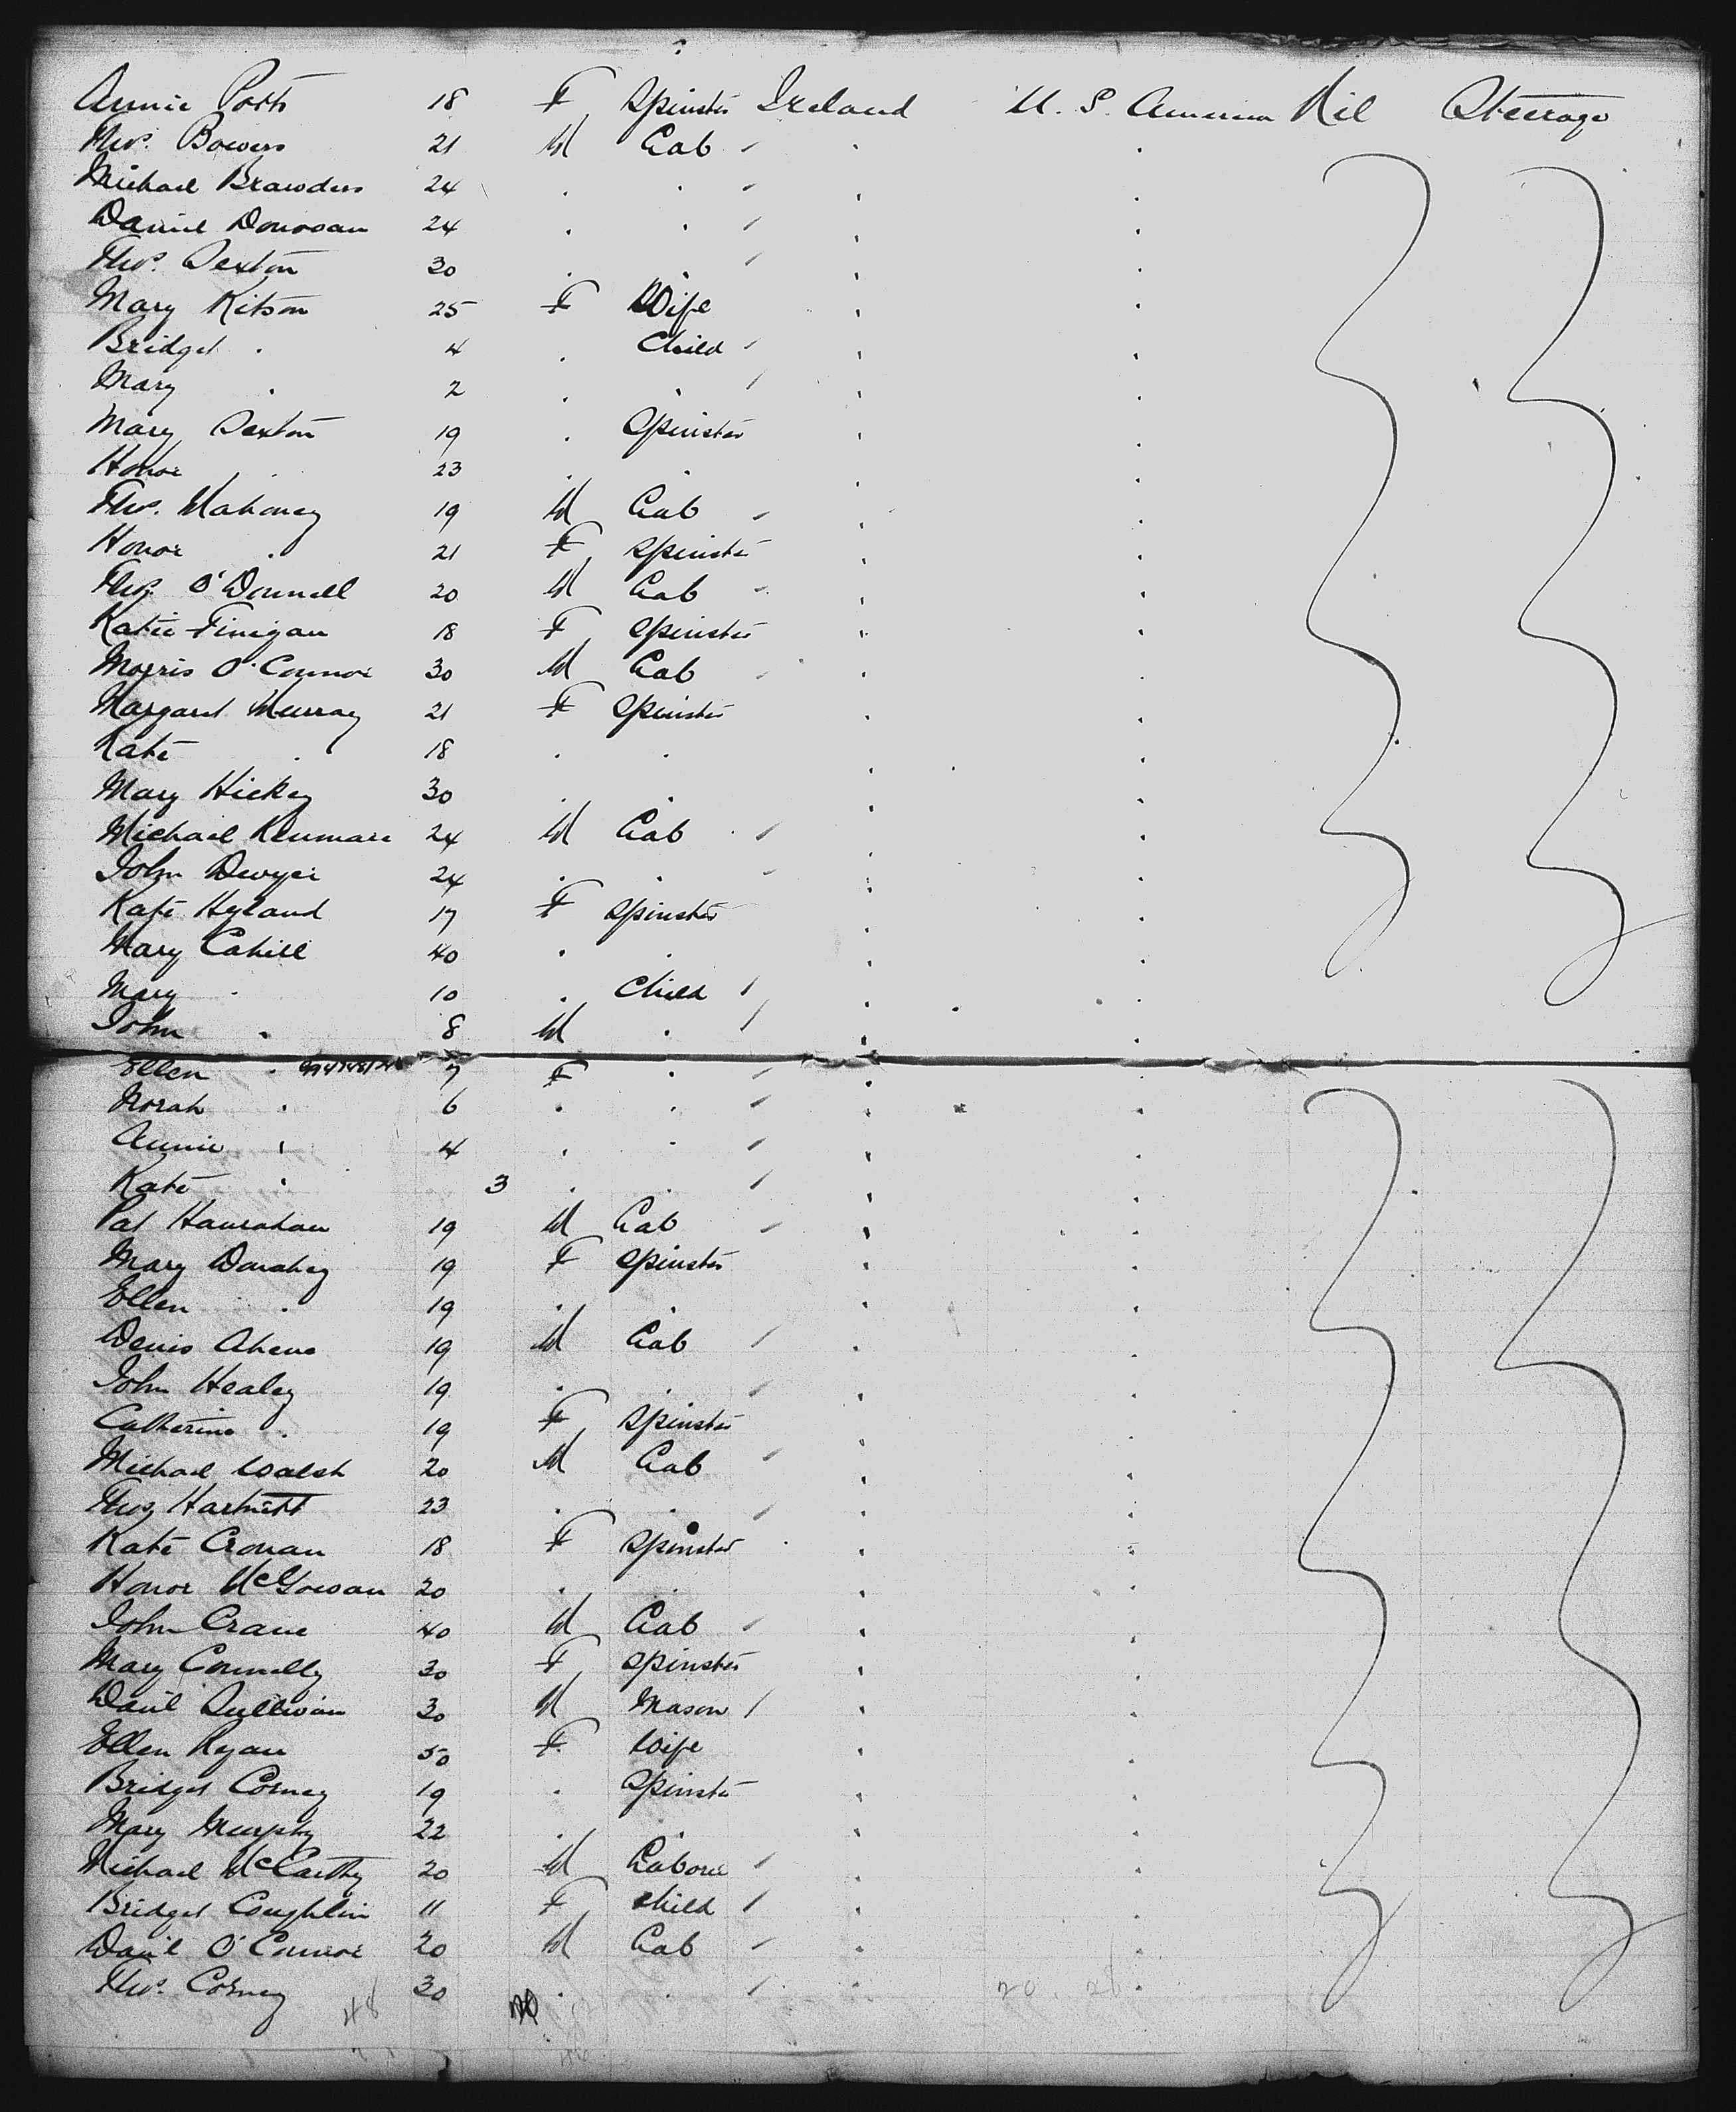 Annie Potts 18 F Spinster Ireland U. S. America Nil Steerage
Thos. Bowers 21 M Lab "
Michael Brawders 24 . . "
Daniel Donovan 24 . . "
Thos. Sexton 30 . . "
Mary Kitson 25 F Wife
Bridget . 4 . Child "
Mary . 2 . . "
Mary Sexton 19 . Spinster
Honor . 23 . .
Thos. Mahoney 19 M Lab "
Honor . 21 F Spinster
Thos. O'Donnell 20 M Lab "
Katie Finigan 18 F Spinster
Morris O'Connor 30 M Lab "
Margaret Murray 21 F Spinster
Kate . 18 . .
Mary Hickey 30 . .
Michael Kenmare 24 M Lab "
John Dwyer 24 . . "
Kate Hyland 17 F Spinster
Mary Cahill 40 . .
Mary . 10 . Child "
John . 8 M . "
Ellen . 7 F . "
Norah . 6 . . "
Annie . 4 . . "
Kate . 3 . . "
Pat Hanrahan 19 M Lab "
Mary Danahey 19 F Spinster
Ellen . 19 . .
Denis Ahene 19 M Lab "
John Healey 19 . . "
Catherine . 19 F Spinster
Michael Walsh 20 M Lab "
Thos Hartnett 23 . . "
Kate Cronan 18 F Spinster
Honor McGowan 20 . .
John Crane 40 M Lab "
Mary Connelly 30 F Spinster
Danl Sullivan 30 M Mason "
Ellen Ryan 50 F Wife
Bridget Corney 19 . Spinster
Mary Murphy 22 . .
Michael McCarthy 20 M Laborer "
Bridget Coughlin 11 F Child "
Danl O'Connor 20 M Lab "
Thos. Corney 30 . . "
48 20. 28